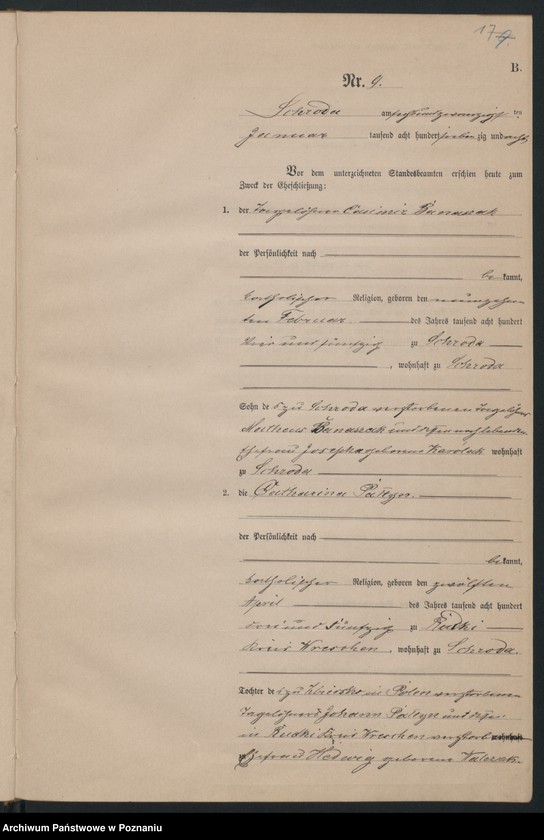 17
9.
B.
Nr. 9.
Schroda am sechsundzwanzigsten
Januar tausend acht hundert siebenzig und acht
Vor dem unterzeichneten Standesbeamten erschien heute zum
Zweck der Eheschließung:
1. der Tagelöhner Casimir Banaszak
der Persönlichkeit nach
bekannt,
katholischer Religion, geboren den neunzehn-
ten Februar des Jahres tausend acht hundert
vier und fünfzig zu Schroda
, wohnhaft zu Schroda
Sohn des zu Schroda verstorbenen Tagelöhners
Matheus Banaszak und dessen nachlebenden
Ehefrau Josepha geborene Karolak wohnhaft
zu Schroda
2. die Catharina
der Persönlichkeit nach
bekannt,
katholischer Religion, geboren den zwölften
April des Jahres tausend acht hundert
drei und fünfzig zu Rudki
Kreis Wreschen, wohnhaft zu Schroda.
Tochter des zu in Polen verstorbenen
Tagelöhners Johann und dessen
in Rudki Kreis Wreschen verstorb wohnhaft
zu Ehefrau Hedwig geborene
Archiwum Państwowe w Poznaniu